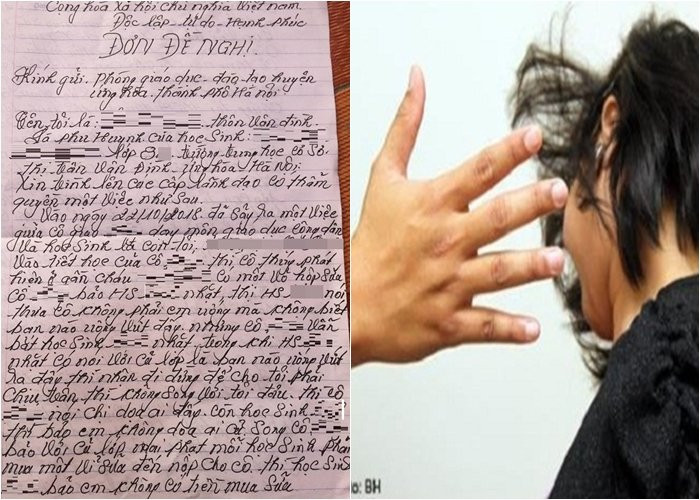 Cộng hòa xã hội chủ nghĩa Việt nam
Độc lập tự do - Hạnh phúc
ĐƠN ĐỀ NGHỊ.
Kính gửi. Phòng giáo dục - đào tạo huyện
ứng hòa. thành phố Hà nội.
Tên tôi là: thôn Vân đình.
Là phụ huynh của học Sinh:
lớp 8. trường trung học cơ Sở
thị trấn Vân Đình, ứng hòa Hà Nội.
Xin trình lên các cấp lãnh đạo có thẩm
quyền một việc như Sau
Vào ngày 22/10/2018 đã Sảy ra một việc
giữa cô giáo dạy môn giáo dục công dân
Và học Sinh là con tôi,
Vào tiết học của cô thì cô thấy phát
hiện ở gần cháu có một vỏ hộp Sữa
Cô bảo HS nhặt, thì HS nói
thưa cô không phải em vứng mà không biết
bạn nào vứng vứt đây. nhưng cô vẫn
bắt học Sinh nhặt, trong khi HS
nhặt có nói với cả lớp là bạn nào vứng vứt
ra đây thì nhận đi đừng để cho tôi phải
chịu vấn thì không Song với tôi đâu. thì cô
nói chị doạ ai đấy. Còn học Sinh
thì bảo em không doạ ai cả. Song cô
bảo với cả lớp mai phạt mỗi học Sinh phải
mua một vỉ Sữa đến nộp cho cô, thì học Sinh
bảo em không có tiền mua Sữa
1
o: BH